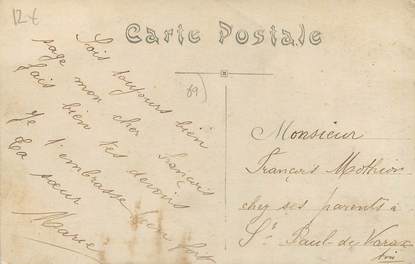 12€
Carte Postale
Sois toujours bien
sage mon cher François
fais bien tes devoirs
Je t'embrasse bien fort
Ta sœur
Marie
(69)
Monsieur
François Mothion
chez ses parents à
St Paul-de-Varax
Ain